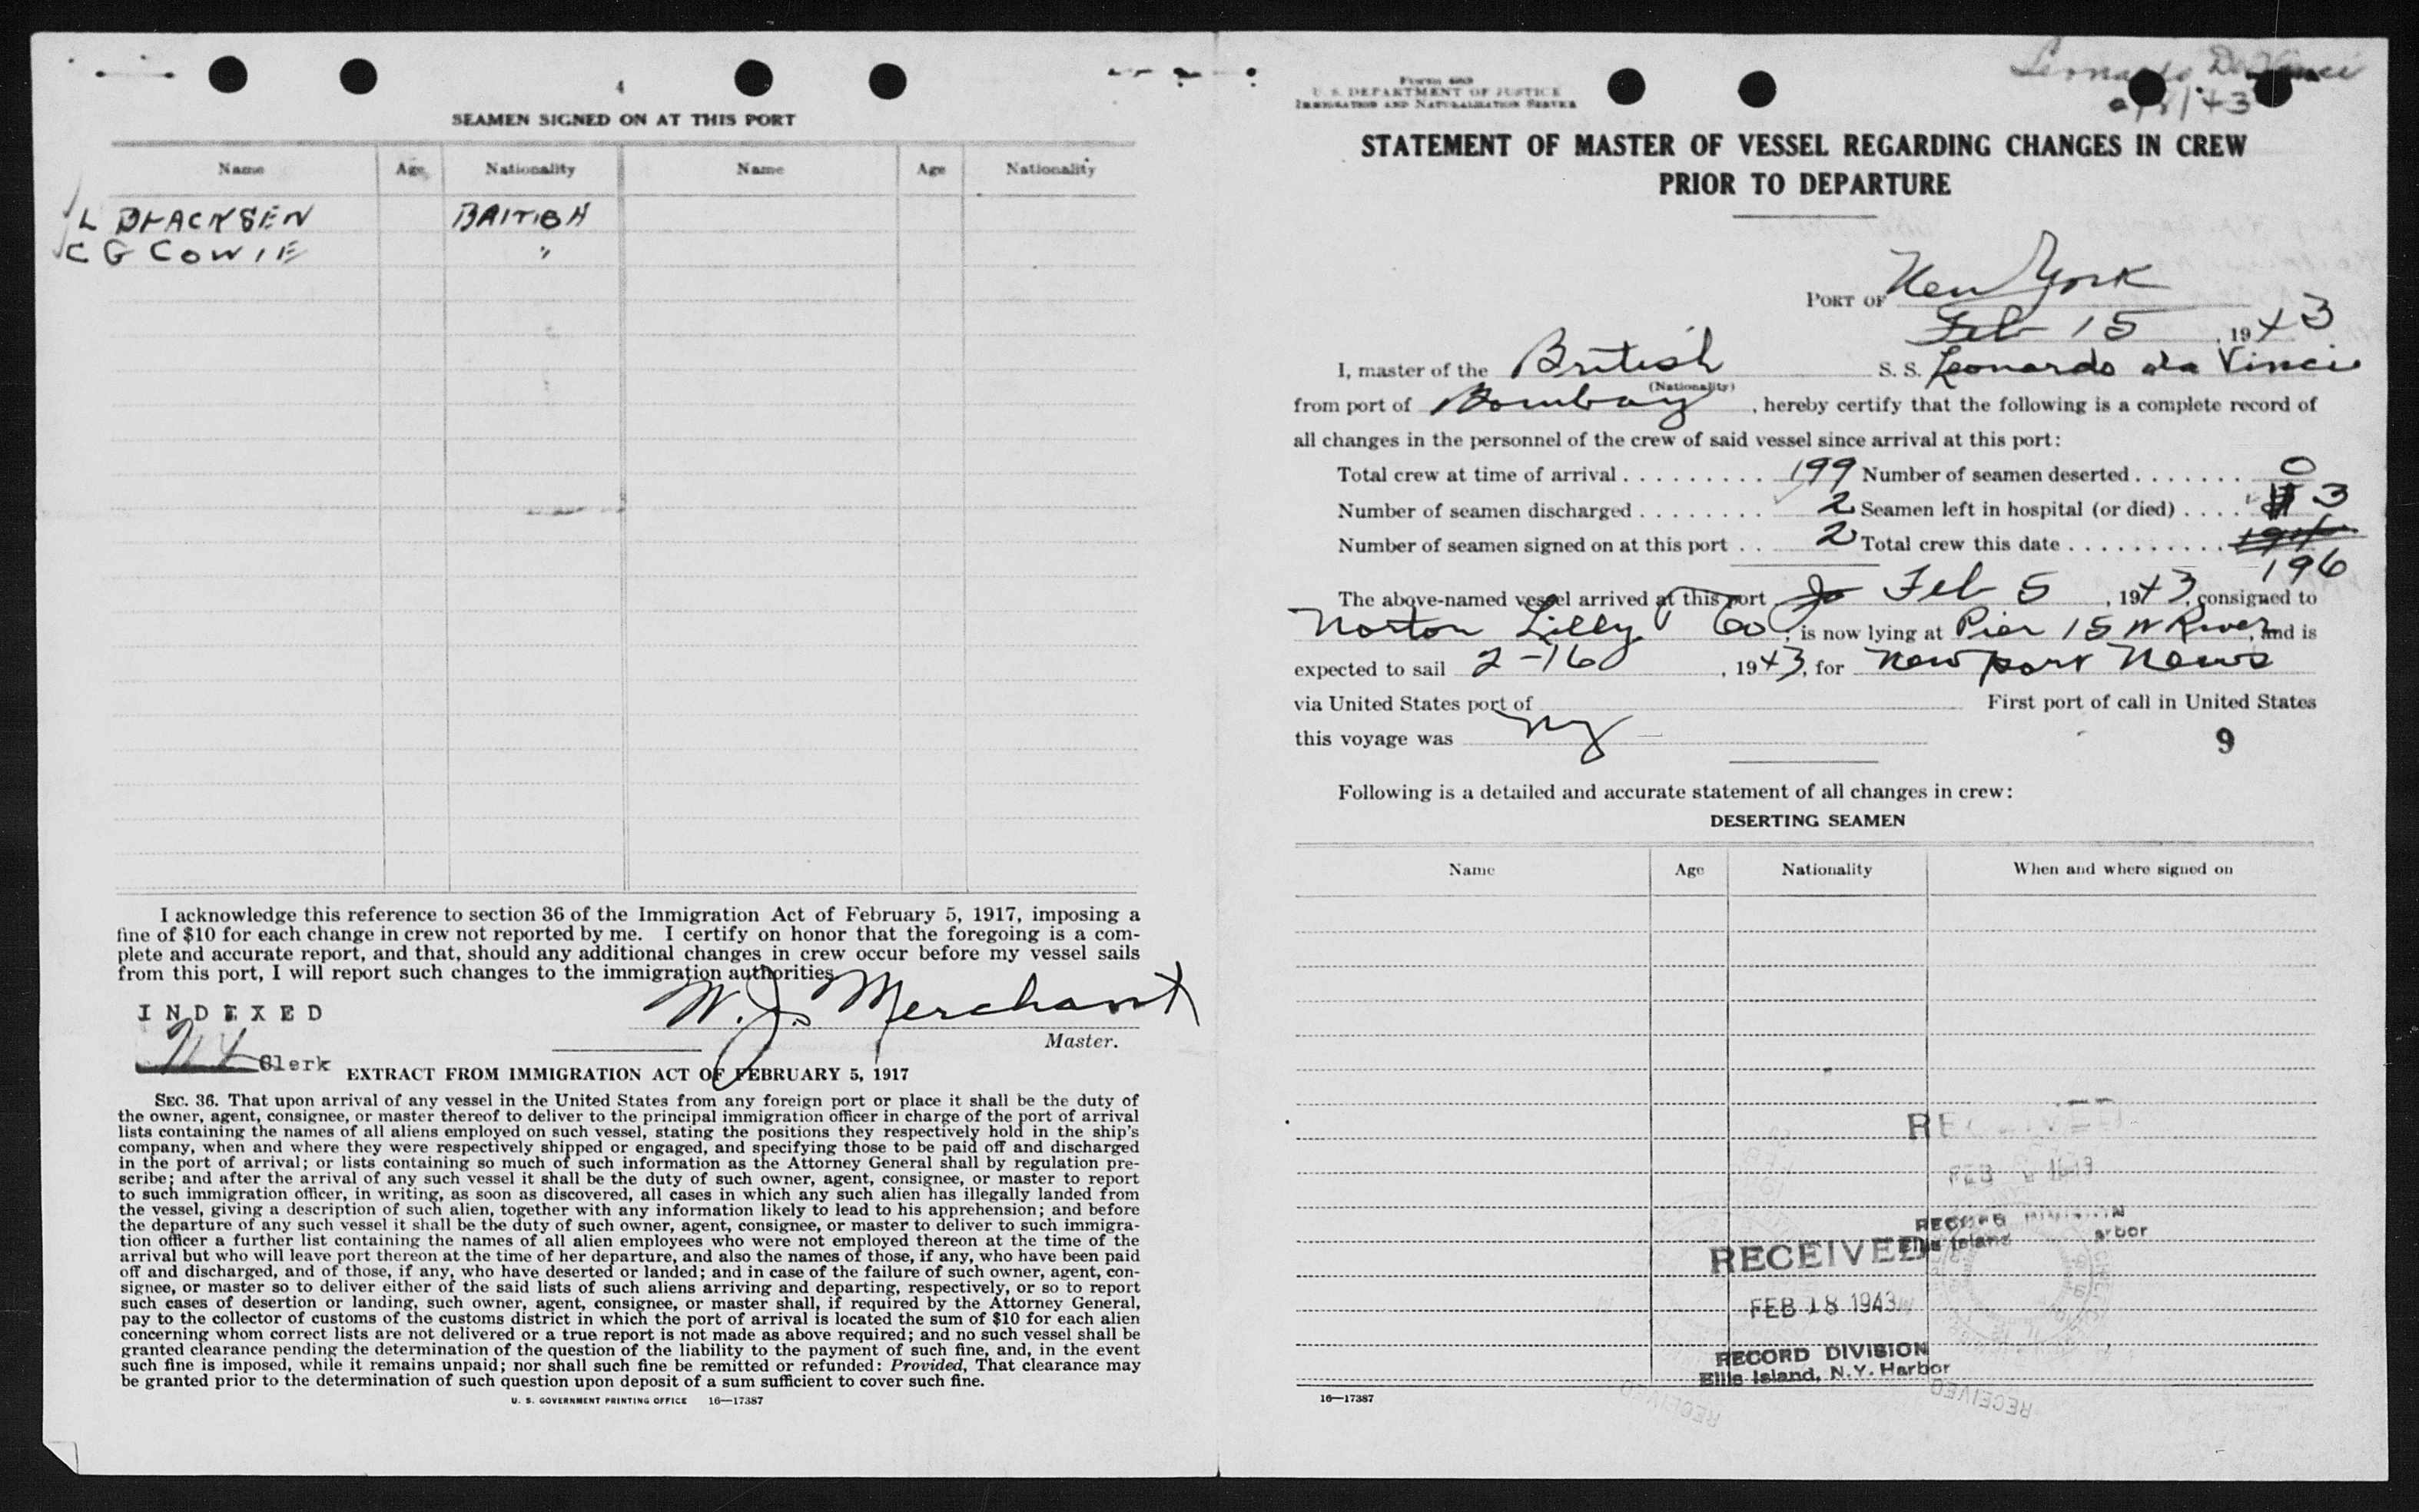 4
SEAMEN SIGNED ON AT THIS PORT
Name Age Nationality Name Age Nationality
L BLACKSEN BRITISH
C G COWIE "
I acknowledge this reference to section 36 of the Immigration Act of February 5, 1917, imposing a
fine of $10 for each change in crew not reported by me. I certify on honor that the foregoing is a com-
plete and accurate report, and that, should any additional changes in crew occur before my vessel sails
from this port, I will report such changes to the immigration authorities.
W. J. Merchant
INDEXED
Master.
Clerk
EXTRACT FROM IMMIGRATION ACT OF FEBRUARY 5, 1917
SEC. 36. That upon arrival of any vessel in the United States from any foreign port or place it shall be the duty of
the owner, agent, consignee, or master thereof to deliver to the principal immigration officer in charge of the port of arrival
lists containing the names of all aliens employed on such vessel, stating the positions they respectively hold in the ship's
company, when and where they were respectively shipped or engaged, and specifying those to be paid off and discharged
in the port of arrival; or lists containing so much of such information as the Attorney General shall by regulation pre-
scribe; and after the arrival of any such vessel it shall be the duty of such owner, agent, consignee, or master to report
to such immigration officer, in writing, as soon as discovered, all cases in which any such alien has illegally landed from
the vessel, giving a description of such alien, together with any information likely to lead to his apprehension; and before
the departure of any such vessel it shall be the duty of such owner, agent, consignee, or master to deliver to such immigra-
tion officer a further list containing the names of all alien employees who were not employed thereon at the time of the
arrival but who will leave port thereon at the time of her departure, and also the names of those, if any, who have been paid
off and discharged, and of those, if any, who have deserted or landed; and in case of the failure of such owner, agent, con-
signee, or master so to deliver either of the said lists of such aliens arriving and departing, respectively, or so to report
such cases of desertion or landing, such owner, agent, consignee, or master shall, if required by the Attorney General,
pay to the collector of customs of the customs district in which the port of arrival is located the sum of $10 for each alien
concerning whom correct lists are not delivered or a true report is not made as above required; and no such vessel shall be
granted clearance pending the determination of the question of the liability to the payment of such fine, and, in the event
such fine is imposed, while it remains unpaid; nor shall such fine be remitted or refunded: Provided, That clearance may
be granted prior to the determination of such question upon deposit of a sum sufficient to cover such fine.
U. S. GOVERNMENT PRINTING OFFICE 16—17387
Leonardo Da Vinci
Form 689
U. S. DEPARTMENT OF JUSTICE
IMMIGRATION AND NATURALIZATION SERVICE
STATEMENT OF MASTER OF VESSEL REGARDING CHANGES IN CREW
PRIOR TO DEPARTURE
PORT OF New York
Feb 15, 1943
I, master of the British S. S. Leonardo da Vinci
(Nationality)
from port of Bombay, hereby certify that the following is a complete record of
all changes in the personnel of the crew of said vessel since arrival at this port:
Total crew at time of arrival 199 Number of seamen deserted 0
Number of seamen discharged 2 Seamen left in hospital (or died) 3
Number of seamen signed on at this port 2 Total crew this date
196
The above-named vessel arrived at this port Feb 5, 1943, consigned to
Norton Lilly Co, is now lying at Pier 15 N River, and is
expected to sail 2-16, 1943, for Newport News
via United States port of First port of call in United States
this voyage was NY
9
Following is a detailed and accurate statement of all changes in crew:
DESERTING SEAMEN
Name Age Nationality When and where signed on
RECEIVED
FEB 1943
RECORD DIVISION
Ellis Island arbor
RECEIVED
FEB 18 1943
RECORD DIVISION
Ellis Island, N.Y. Harbor
RECEIVED
RECEIVED
16—17387